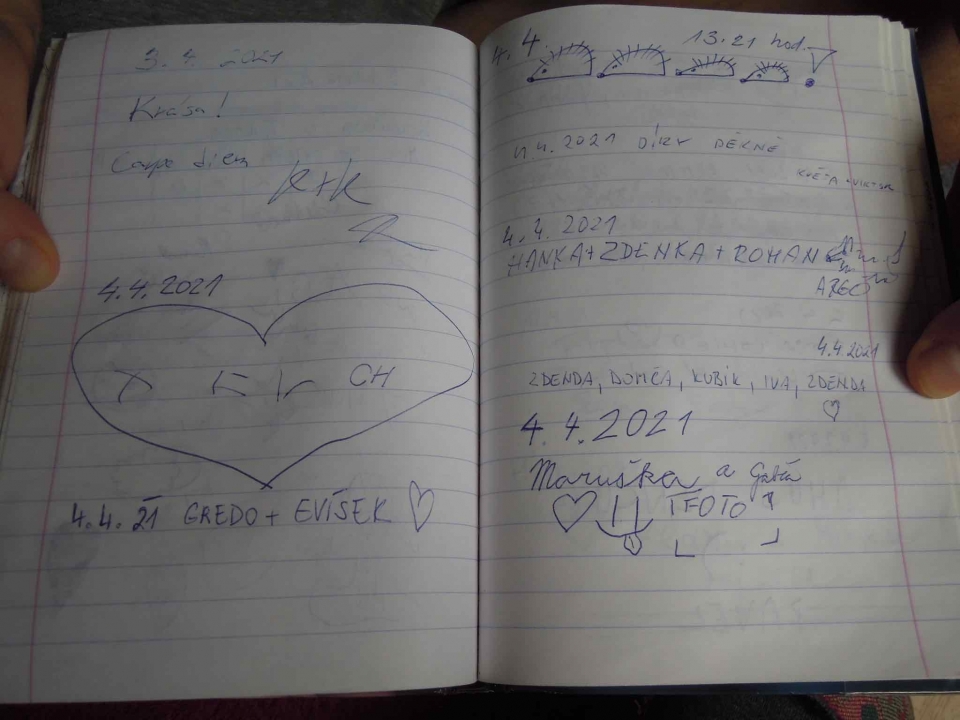 3. 4. 2021
Krása!
Carpe diem
K+K
4.4.2021
CH
4.4. 21 GREDO + EVÍŠEK
4. 4. 13.21 hod.
4.4. 2021 DÍKY PĚKNÉ
KVĚTA + VIKTOR
4.4. 2021
HANKA+ZDENKA+ROMAN
4.4.2021
ZDENDA, DOMČA, KUBÍK, IVA, ZDENDA
4.4.2021
Maruška a
FOTO